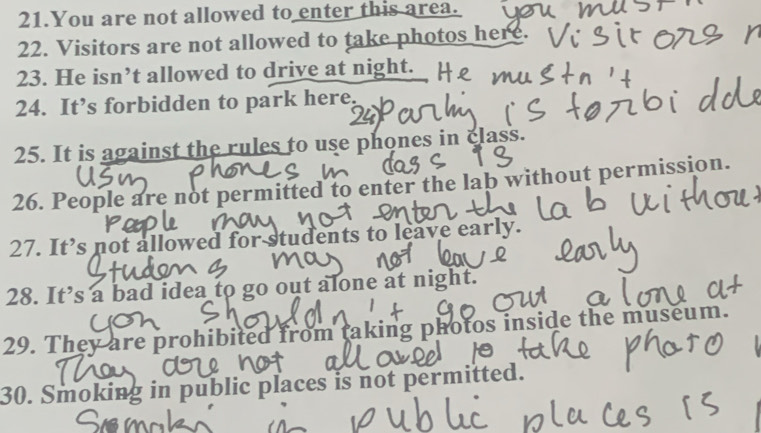 21.You are not allowed to enter this area. you must
22. Visitors are not allowed to take photos here. Visit ors
23. He isn't allowed to drive at night. He mustn't
24. It's forbidden to park here. 24) parking is forbidde
25. It is against the rules to use phones in class.
usin phones in class is
26. People are not permitted to enter the lab without permission.
people may not enter the lab without
27. It's not allowed for students to leave early.
Students may not leave early
28. It's a bad idea to go out alone at night.
you shouldn't go out alone at
29. They are prohibited from taking photos inside the museum.
They are not allowed to take photo
30. Smoking in public places is not permitted.
in public places is